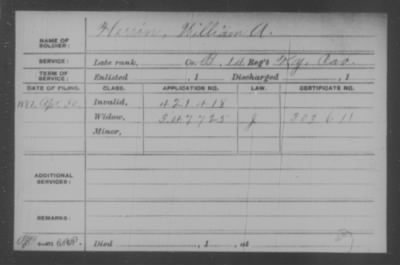 NAME OF SOLDIER: Herrin, William A.
SERVICE: Late rank, Co. B, 1st Reg't Ky. Cav.
TERM OF SERVICE: Enlisted , 1 Discharged , 1
DATE OF FILING. CLASS. APPLICATION NO. LAW. CERTIFICATE NO.
1881 Apr. 30. Invalid, 421.418
Widow, 347725 303611
Minor,
ADDITIONAL SERVICES:
REMARKS:
Died , 1 , at